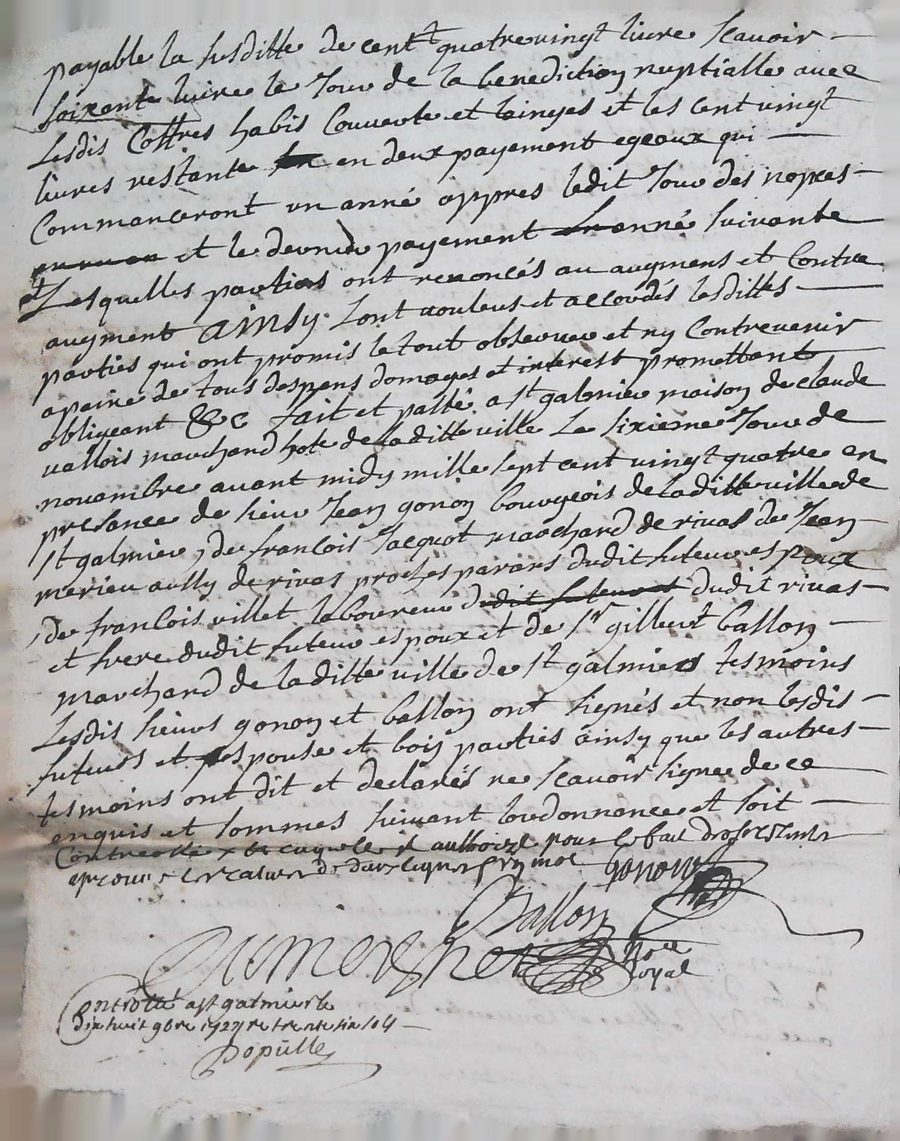 payable la susditte de centt quatrevingt livre scavoir
soixante livre le Jour de la benediction nuptialle avec
Lesdis Coffres habis Couverte et lainges et les cent vingt
livres restante en deux payement egeaux qui
Commanceront un anné appres ledit Jour des nopces
et le dernier payement anné suivante
Lesquelles parties ont renoncés au augmens et Contre
augment ainsy. sont vouleus et accordés lesdittes
parties qui ont promis le tout observer et ny Contrevenir
apaine de tous despens domages et interest promettant
obligeant &c fait et passé a st galmier maison de claude
vallois marchand hote de laditte ville Le sixieme Jour de
novambre avant midy mille sept cent vingt quatre en
presance de sieur Jean gonon bourgeois de laditte ville de
st galmier, de francois Jacquot marchand de rivas de Jean
merieu aussy de rivas proches parans dudit futeur espoux
de francois villet laboureur dudit rivas
et frere dudit futeur espoux et de sr gilleut ballon
marchand de laditte ville de st galmier tesmoins
Lesdis sieurs gonon et ballon ont signés et non lesdis
futeurs et espouse et bois parties ainsy que les autres
tesmoins ont dit et declarés ne scavoir signer de ce
enquis et sommes suivant lordonnance et soit
Controllé autborize pour
gonon
ballon
nore
royal
Controllé a st galmier le
dix huit 9bre 1724 re trente six sols
Populle